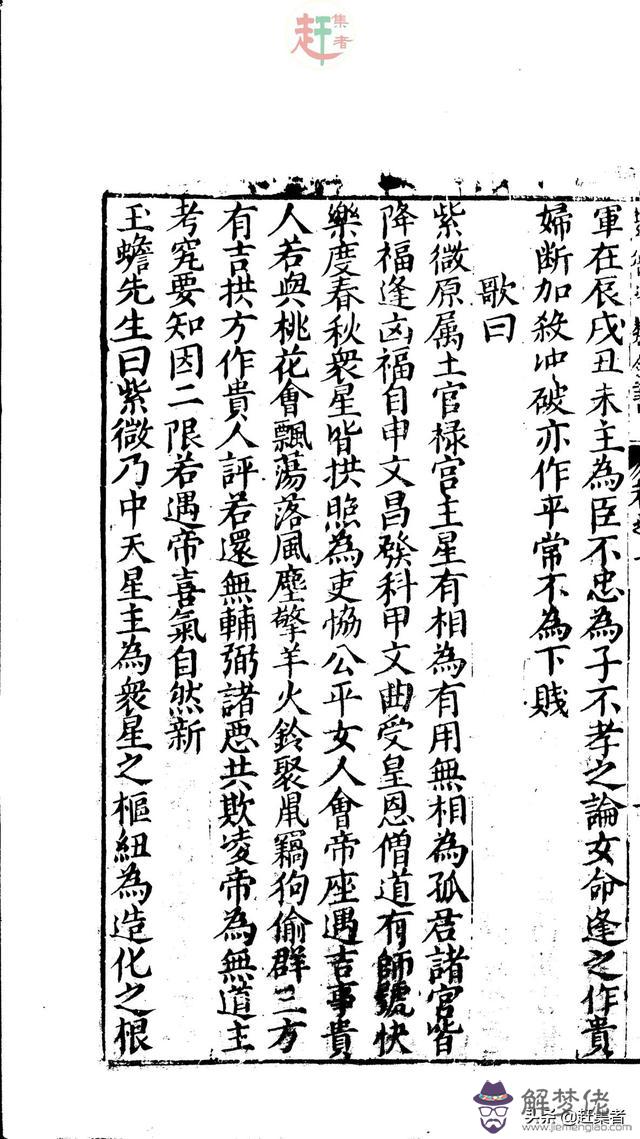 赶集者
軍在辰戌丑未主為臣不忠為子不孝之論女命逢之作貴
婦断加殺冲破亦作平常不為下賎
歌曰
紫微原属土官禄宫主星有相為有用無相為孤君諸宫皆
降福逢凶福自申文昌發科甲文曲受皇恩僧道有師號快
樂度春秋衆星皆拱照為吏恊公平女人會帝座遇吉事貴
人若與桃花會飄蕩落風塵擎羊火鈴聚鼠竊狗偷群三方
有吉拱方作貴人評若還無輔弼諸悪共欺凌帝為無道主
考究要知因二限若遇帝喜氣自然新
玉蟾先生曰紫微乃中天星主為衆星之樞紐為造化之根
解梦佬
www.jiemenglao.com
头条 @赶集者